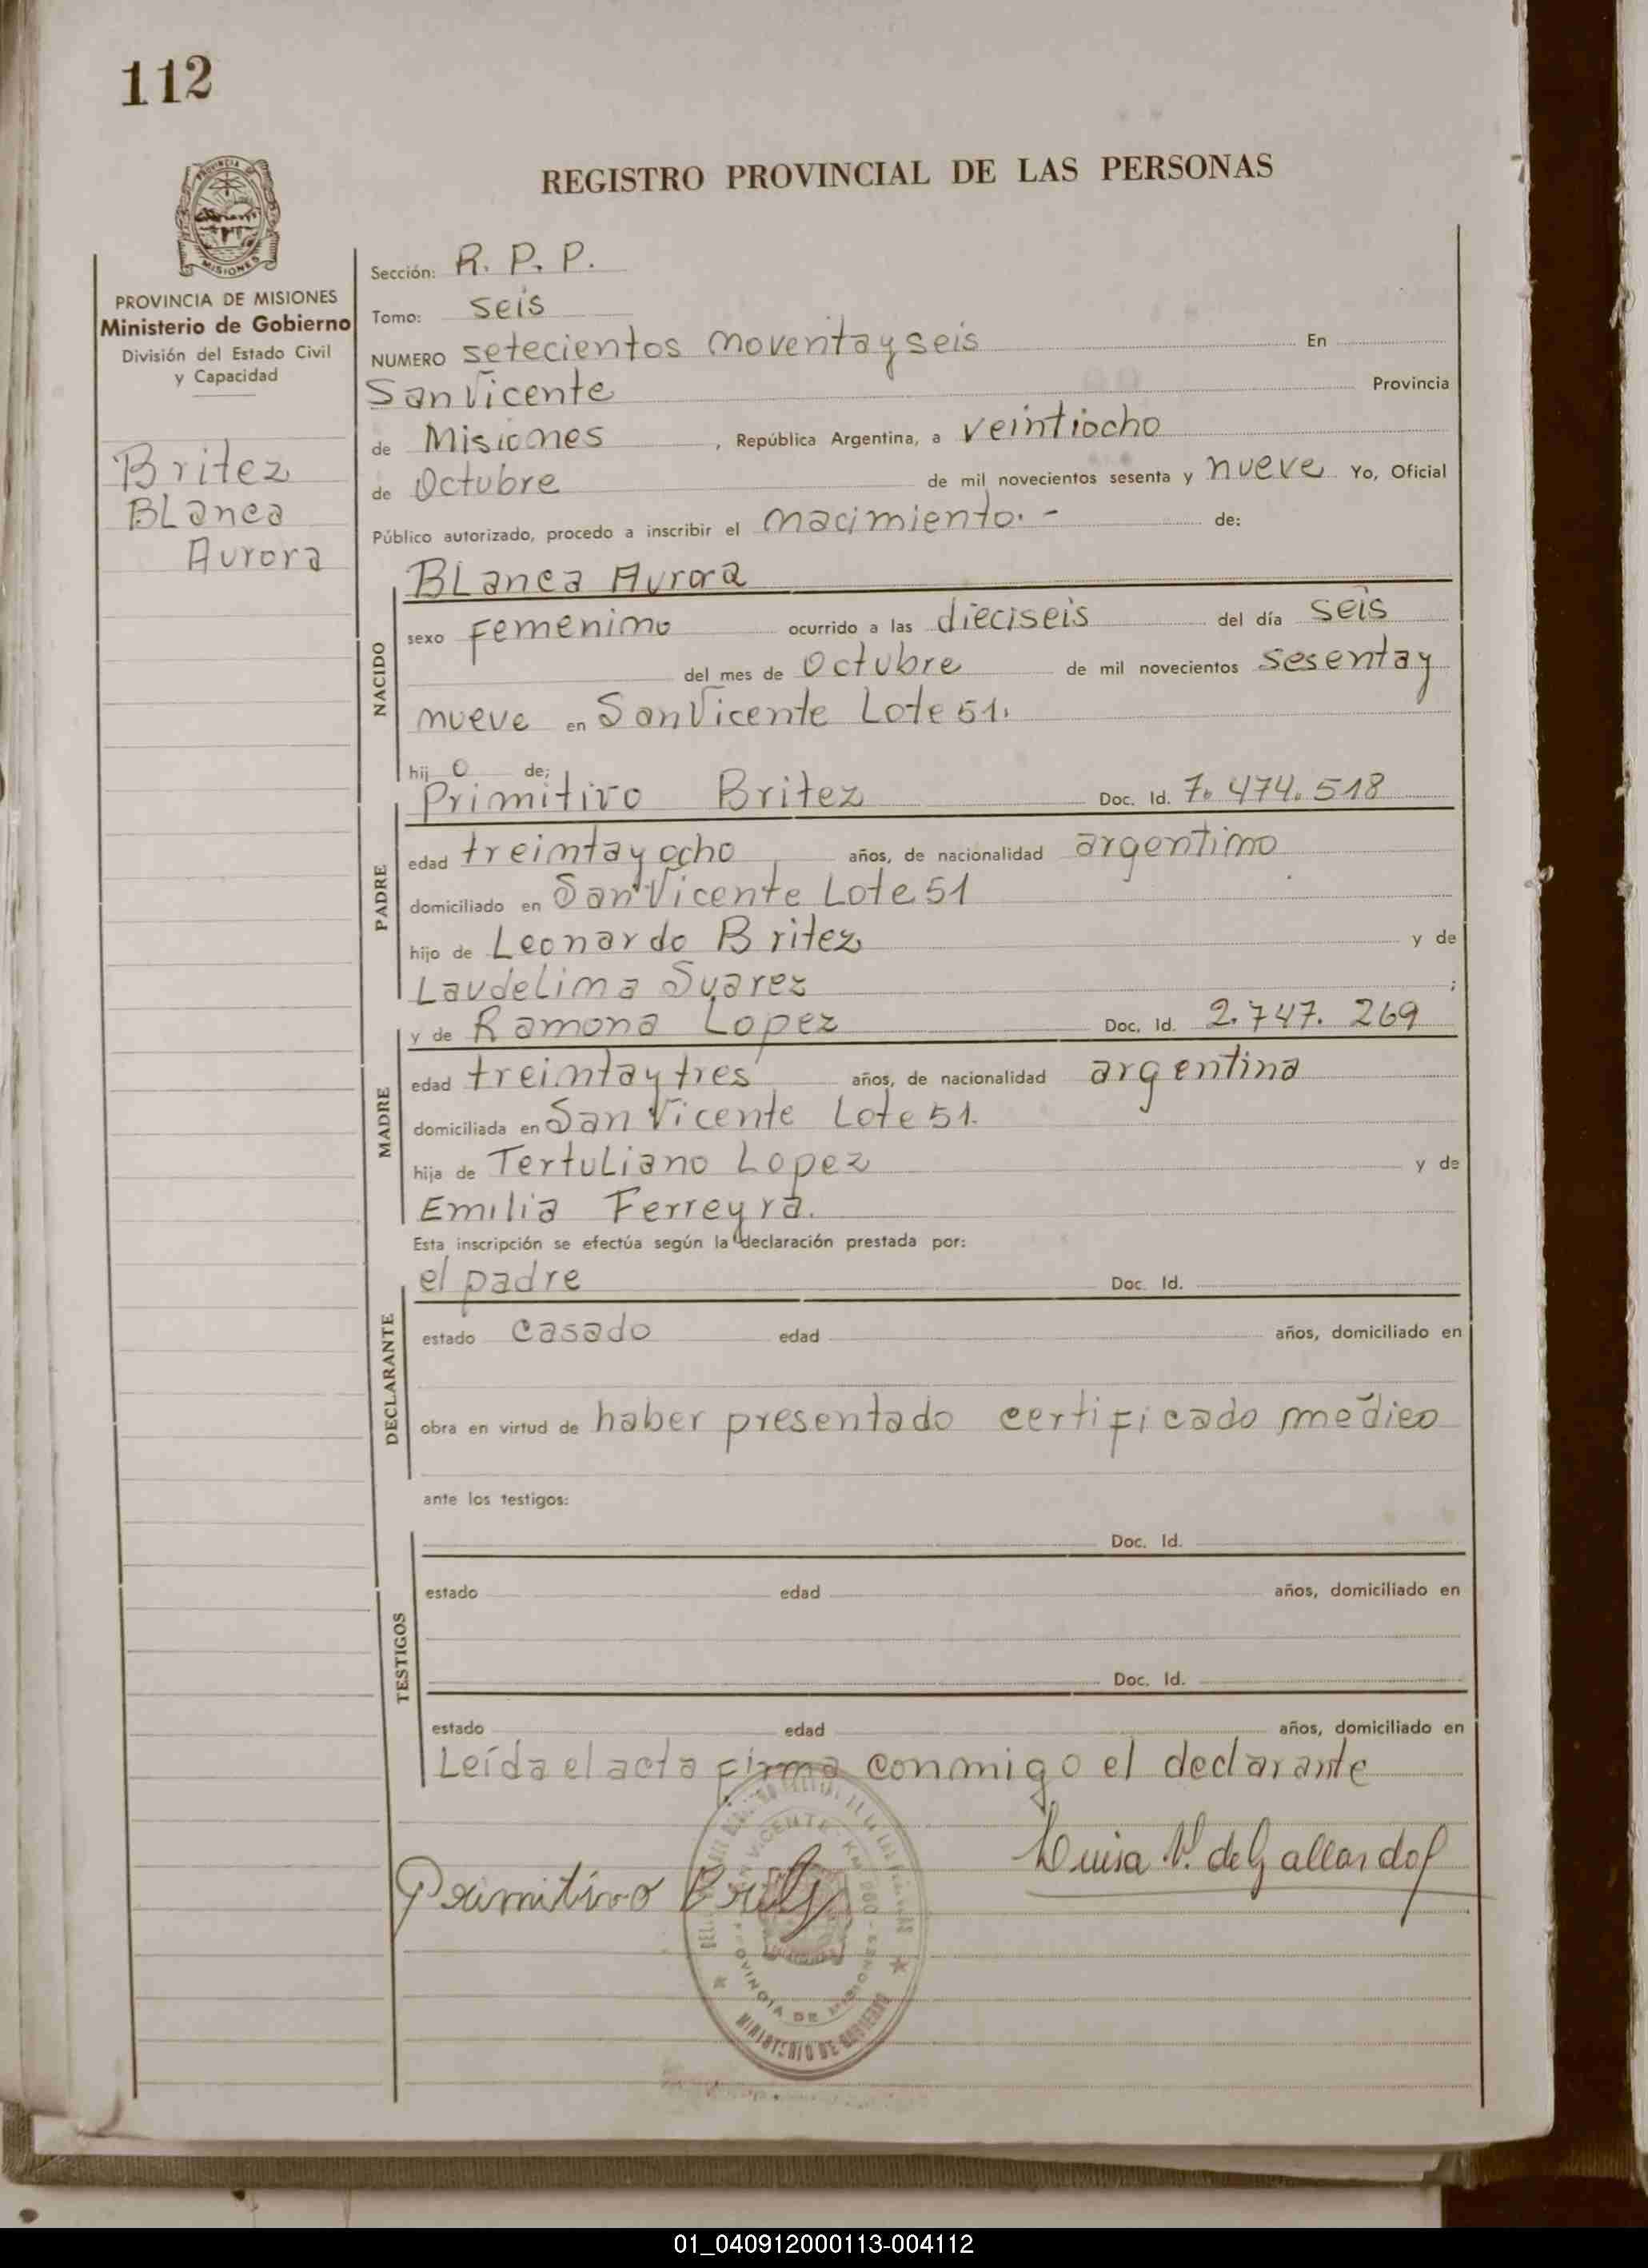 112
REGISTRO PROVINCIAL DE LAS PERSONAS
PROVINCIA DE MISIONES
Ministerio de Gobierno
División del Estado Civil
y Capacidad
Britez
BLanca
Aurora
Sección: R. P. P.
Tomo: seis
NUMERO setecientos noventa y seis En
San Vicente Provincia
de Misiones , República Argentina, a veintiocho
de Octubre de mil novecientos sesenta y nueve Yo, Oficial
Público autorizado, procedo a inscribir el nacimiento. - de:
NACIDO
BLanca Aurora
sexo Femenino ocurrido a las dieciseis del día seis
del mes de Octubre de mil novecientos sesenta y
nueve en San Vicente Lote 51.
hij o de:
PADRE
Primitivo Britez Doc. Id. 7.474.518
edad treinta y ocho años, de nacionalidad argentino
domiciliado en San Vicente Lote 51
hijo de Leonardo Britez y de
Laudelina Suarez ;
MADRE
y de Ramona Lopez Doc. Id. 2.747.269
edad treinta y tres años, de nacionalidad argentina
domiciliada en San Vicente Lote 51.
hija de Tertuliano Lopez y de
Emilia Ferreyra.
Esta inscripción se efectúa según la declaración prestada por:
DECLARANTE
el padre Doc. Id.
estado casado edad años, domiciliado en
obra en virtud de haber presentado certificado médico
ante los testigos:
TESTIGOS
Doc. Id.
estado edad años, domiciliado en
Doc. Id.
estado edad años, domiciliado en
Leída el acta firma conmigo el declarante
Primitivo Britez
Luisa V. de Gallardo
SAN VICENTE - KM
PROVINCIA DE MISIONES
MINISTERIO DE GOBIERNO
01_040912000113-004112